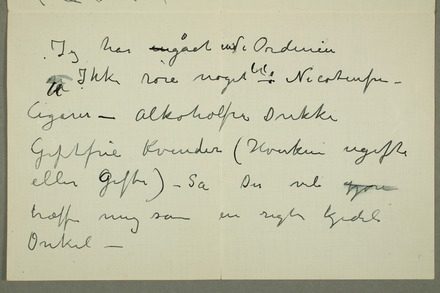 Jeg har gået ind i Ordenen
Ikke røre noget. Nicotinfri
Cigarer — Alkoholfri Drikke
Giftfrie Kvinder (Hverken ugifte
eller Gifte) — Så De vil
træffe mig som en rigtig kjedelig
Onkel —